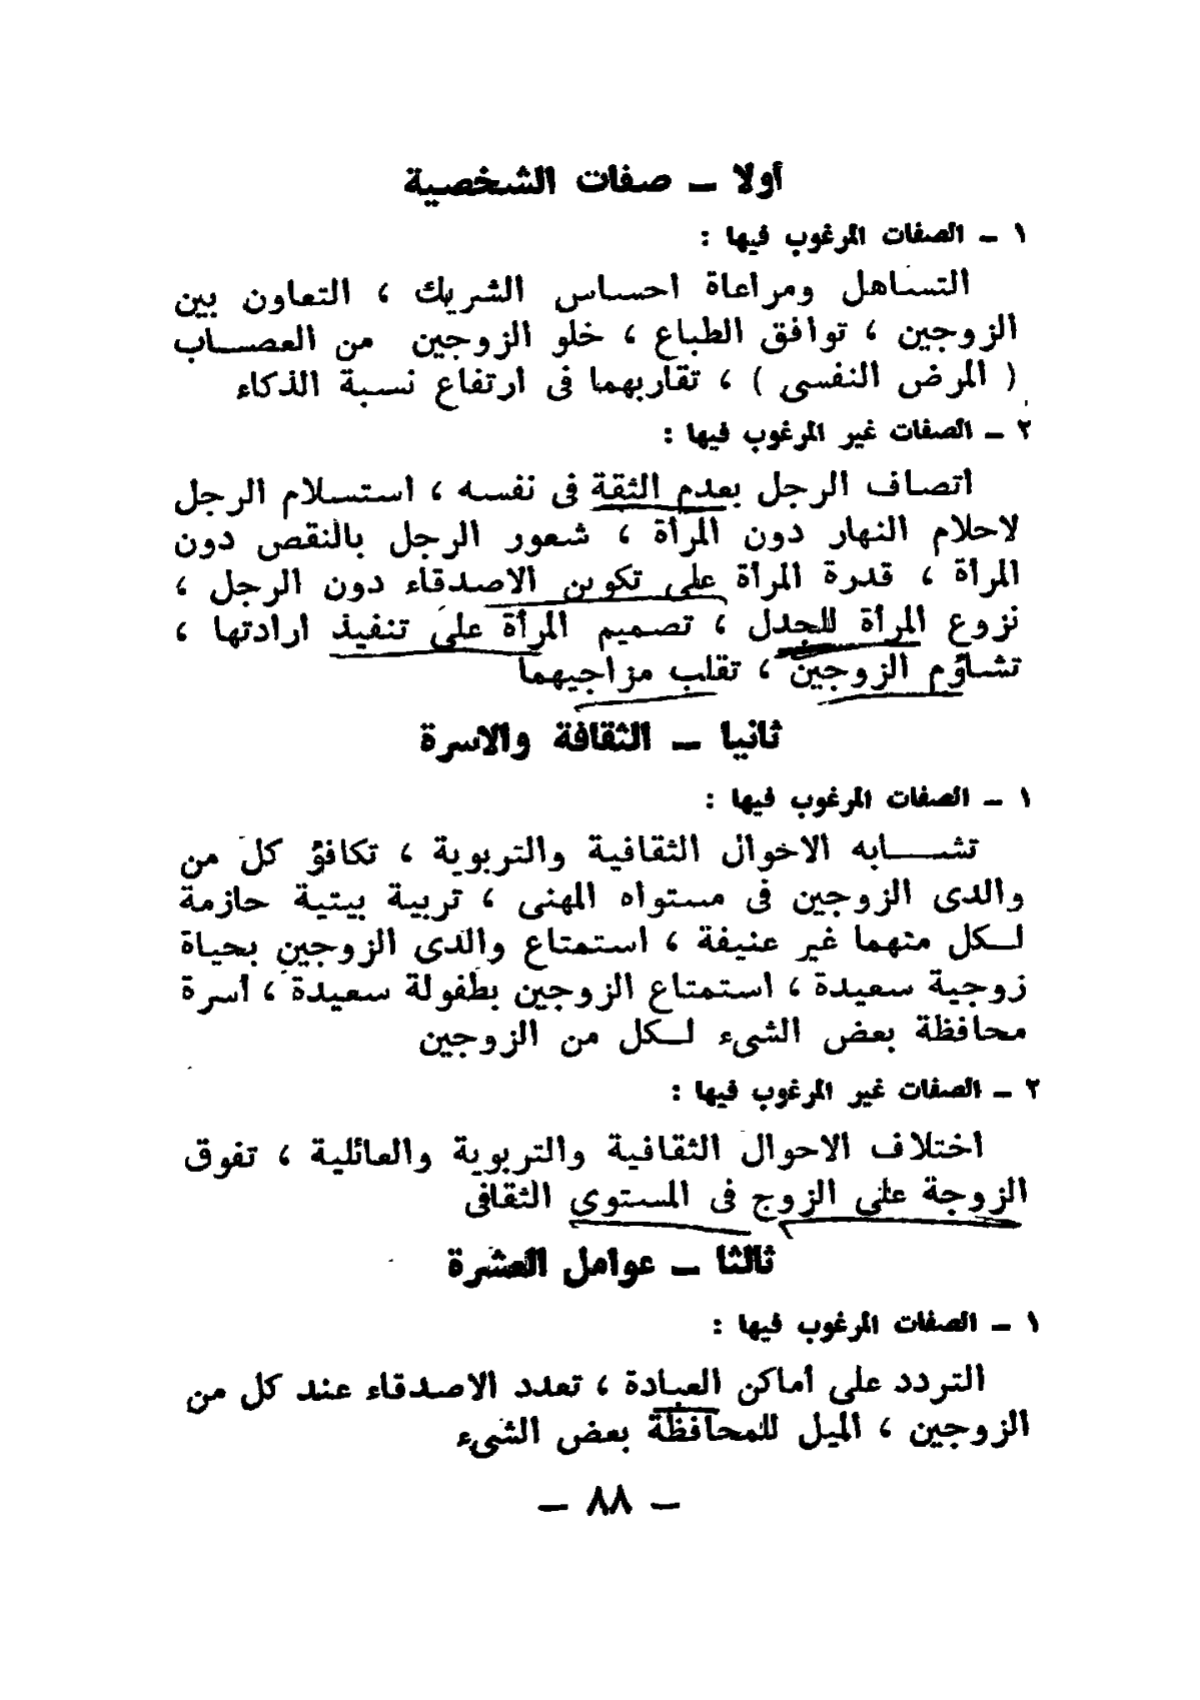 أولا ــ صفات الشخصية
١ ــ الصفات المرغوب فيها :
التساهل ومراعاة احساس الشريك ، التعاون بين
الزوجين ، توافق الطباع ، خلو الزوجين من العصاب
( المرض النفسى ) ، تقاربهما فى ارتفاع نسبة الذكاء
٢ ــ الصفات غير المرغوب فيها :
اتصاف الرجل بعدم الثقة فى نفسه ، استسلام الرجل
لاحلام النهار دون المرأة ، شعور الرجل بالنقص دون
المرأة ، قدرة المرأة على تكوين الاصدقاء دون الرجل ،
نزوع المرأة للجدل ، تصميم المرأة على تنفيذ ارادتها ،
تشاؤم الزوجين ، تقلب مزاجيهما
ثانيا ــ الثقافة والاسرة
١ ــ الصفات المرغوب فيها :
تشابه الاحوال الثقافية والتربوية ، تكافؤ كل من
والدى الزوجين فى مستواه المهنى ، تربية بيتية حازمة
لكل منهما غير عنيفة ، استمتاع والدى الزوجين بحياة
زوجية سعيدة ، استمتاع الزوجين بطفولة سعيدة ، أسرة
محافظة بعض الشىء لكل من الزوجين
٢ ــ الصفات غير المرغوب فيها :
اختلاف الاحوال الثقافية والتربوية والعائلية ، تفوق
الزوجة على الزوج فى المستوى الثقافى
ثالثا ــ عوامل العشرة
١ ــ الصفات المرغوب فيها :
التردد على أماكن العبادة ، تعدد الاصدقاء عند كل من
الزوجين ، الميل للمحافظة بعض الشىء
ــ ٨٨ ــ